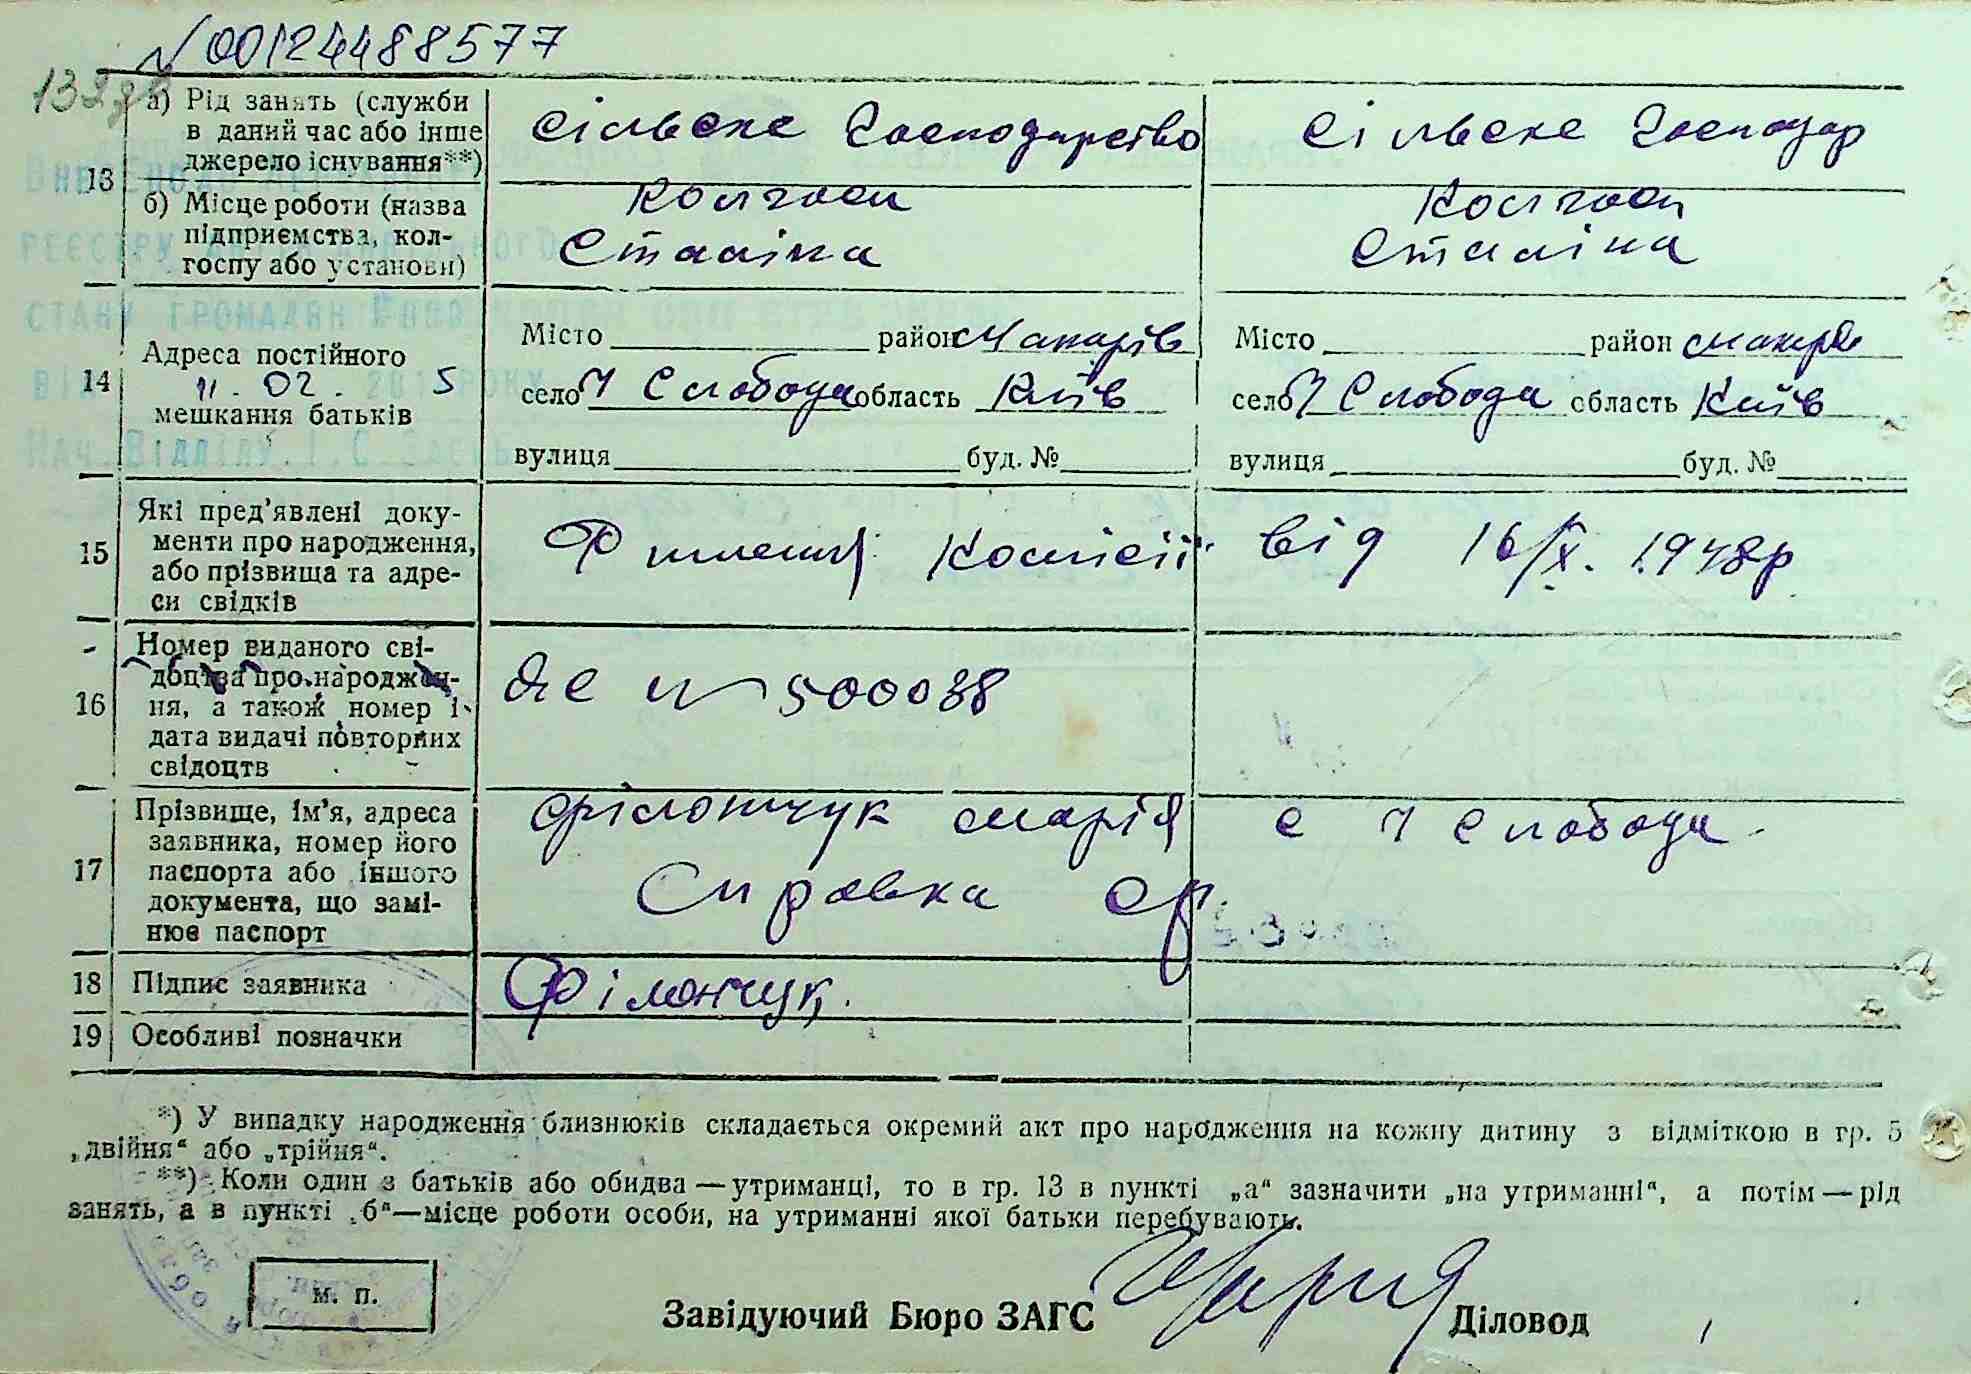 N 00124488577
132дв
13
а) Рід занять (служби в даний час або інше джерело існування**)
сільске господарство
сільске господар
б) Місце роботи (назва підприємства, колгоспу або установи)
колгосп
Сталіна
колгосп
Сталіна
Внесено до
реєстру
стану громадян
від 11.02.2015 року
Нач. Відділу І.С.
14
Адреса постійного мешкання батьків
Місто район Макарів
село М Слобода область Київ
вулиця буд. №
Місто район Макарів
село М Слобода область Київ
вулиця буд. №
15
Які пред'явлені документи про народження, або прізвища та адреси свідків
комісії від 16/IX. 1948р
16
Номер виданого свідоцтва про народження, а також номер і дата видачі повторних свідоцтв
ЯЄ N 500038
17
Прізвище, ім'я, адреса заявника, номер його паспорта або іншого документа, що замінює паспорт
Філончук Марія с М Слобода
Справка
18
Підпис заявника
Філончук.
19
Особливі позначки
*) У випадку народження близнюків складається окремий акт про народження на кожну дитину з відміткою в гр. 5
„двійня“ або „трійня“.
**) Коли один з батьків або обидва — утриманці, то в гр. 13 в пункті „а“ зазначити „на утриманні“, а потім — рід
занять, а в пункті „б“—місце роботи особи, на утриманні якої батьки перебувають.
м. п.
Завідуючий Бюро ЗАГС
Діловод